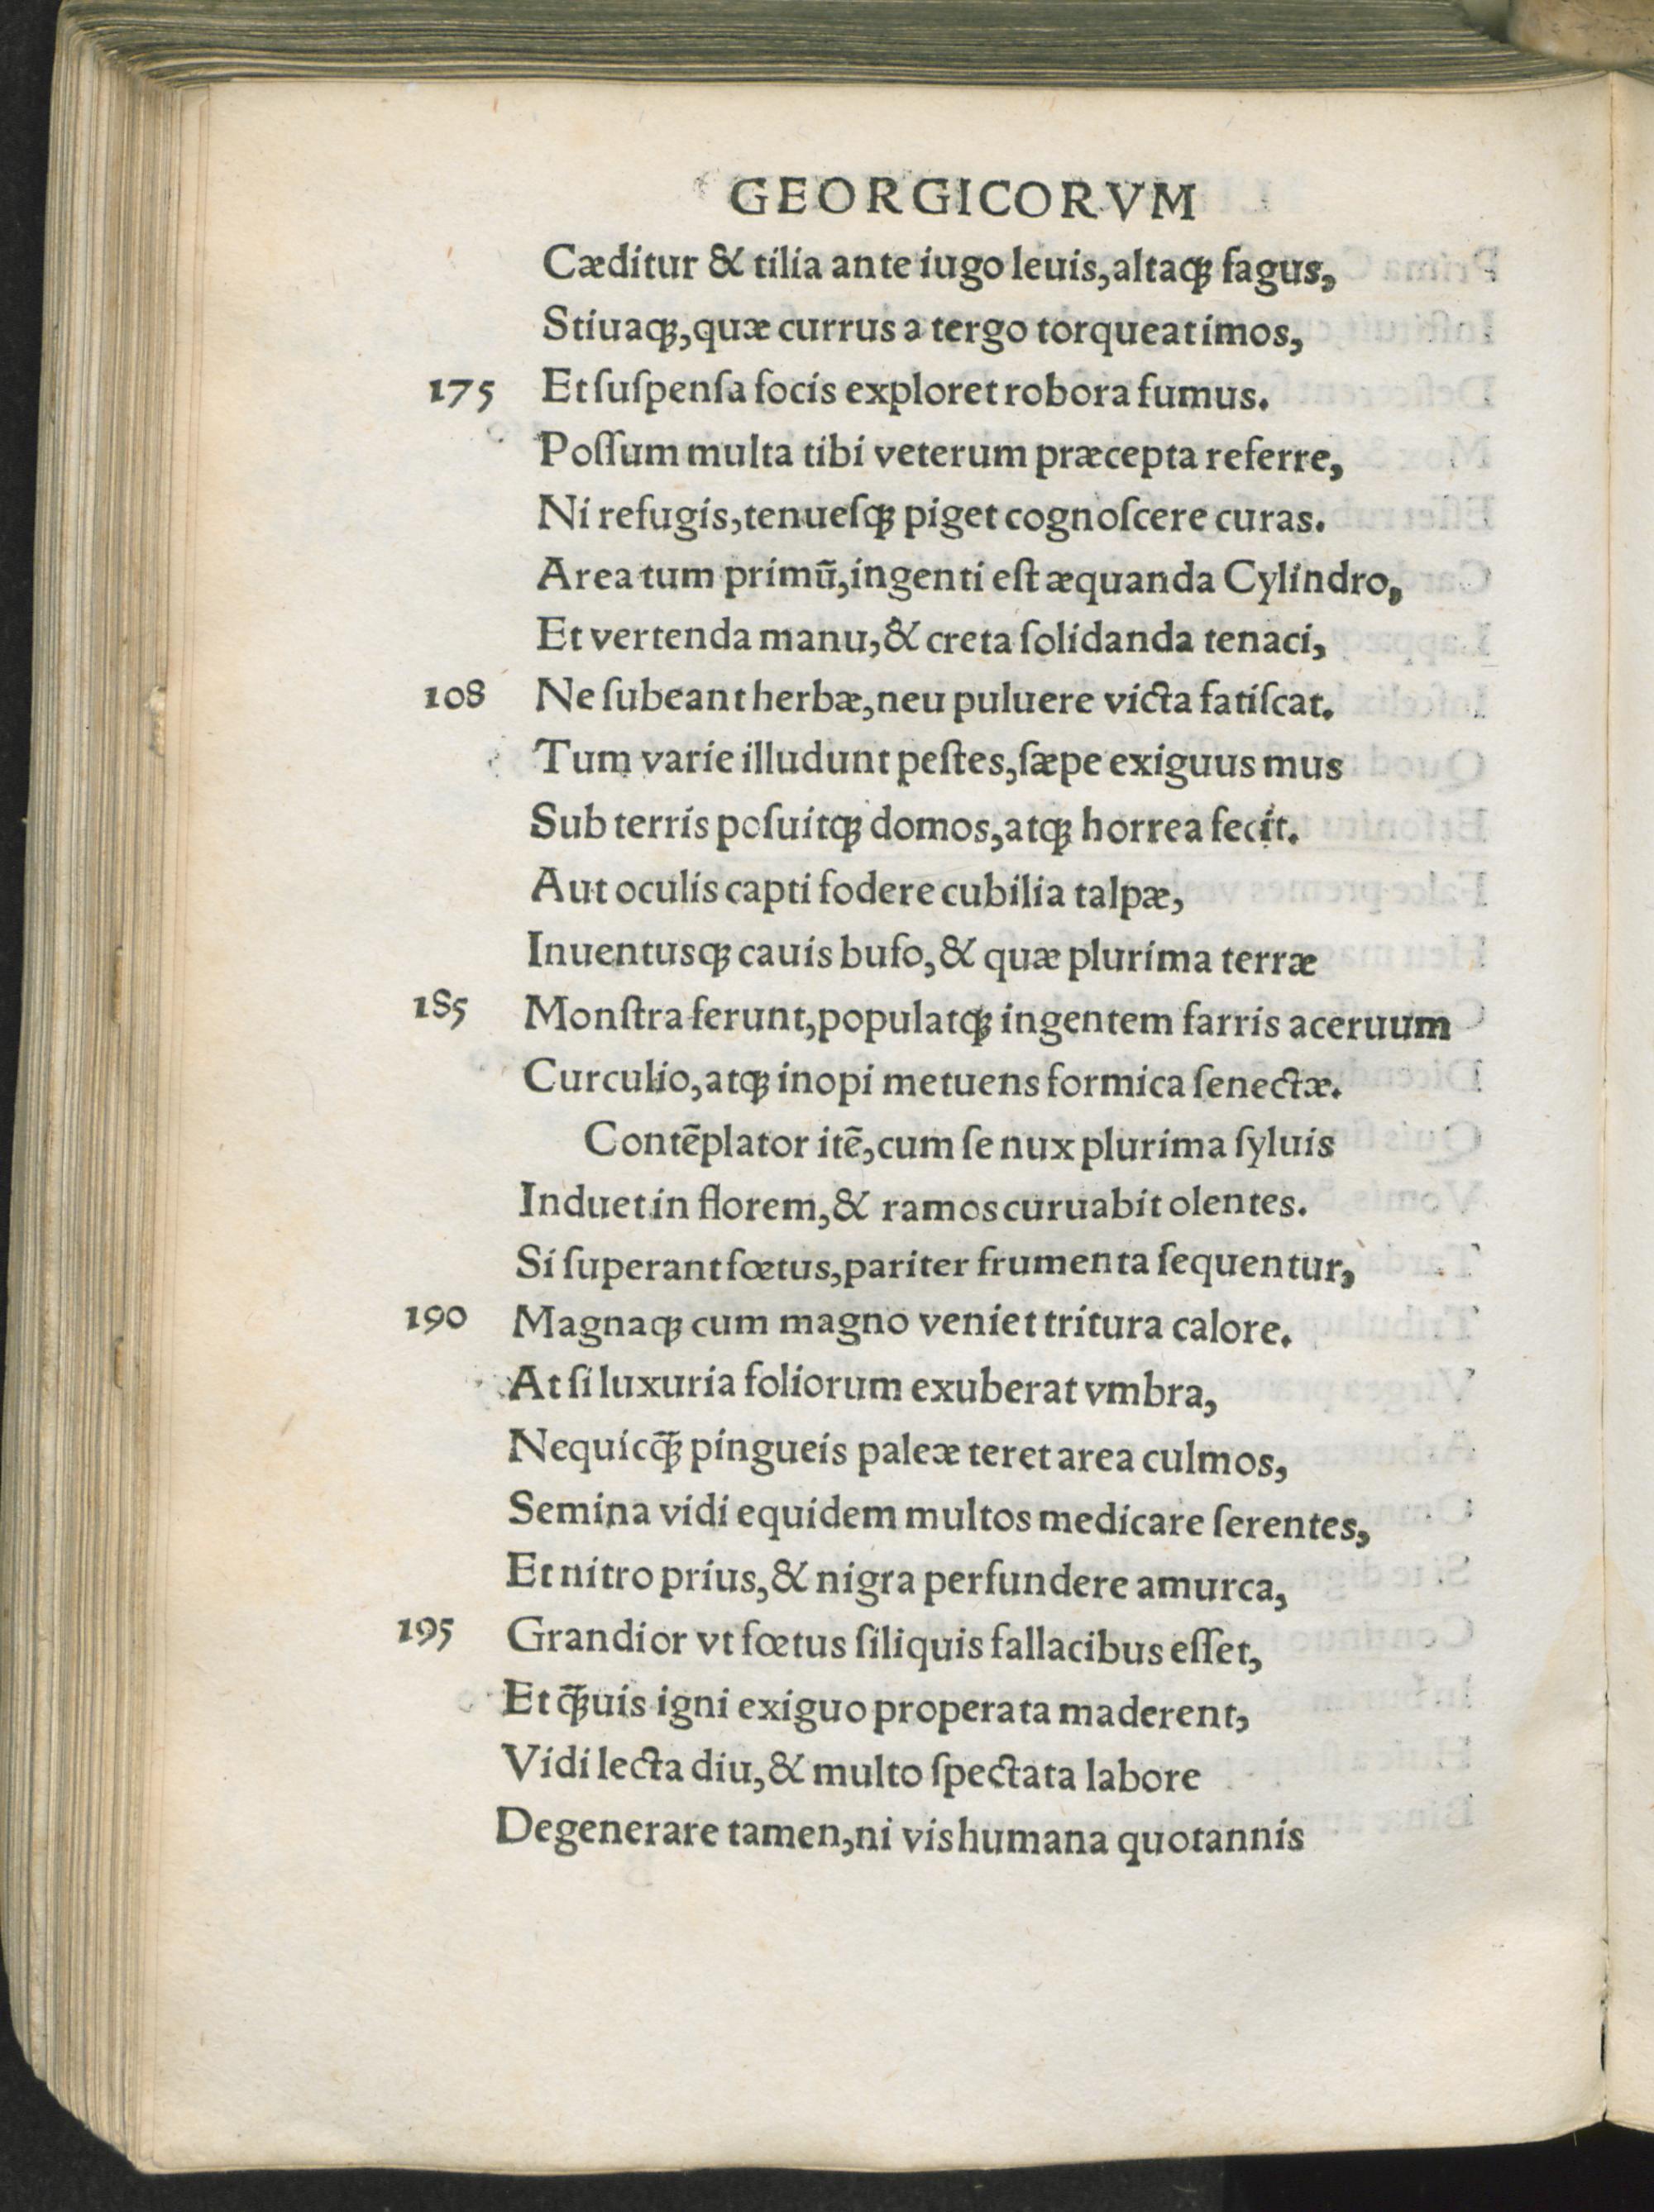 GEORGICORVM
Cæditur & tilia ante iugo leuis, altaqꝫ fagus,
Stiuaqꝫ, quæ currus a tergo torqueat imos,
175 Et ſuſpenſa focis exploret robora fumus.
Poſſum multa tibi veterum præcepta referre,
Ni refugis, tenueſqꝫ piget cognoſcere curas.
Area tum primū, ingenti eſt æquanda Cylindro,
Et vertenda manu, & creta ſolidanda tenaci,
108 Ne ſubeant herbæ, neu puluere victa fatiſcat.
Tum varie illudunt peſtes, ſæpe exiguus mus
Sub terris poſuitqꝫ domos, atqꝫ horrea fecit.
Aut oculis capti fodere cubilia talpæ,
Inuentusqꝫ cauis bufo, & quæ plurima terræ
185 Monſtra ferunt, populatqꝫ ingentem farris aceruum
Curculio, atqꝫ inopi metuens formica ſenectæ.
Contēplator itē, cum ſe nux plurima ſyluis
Induet in florem, & ramos curuabit olentes.
Si ſuperant fœtus, pariter frumenta ſequentur,
190 Magnaqꝫ cum magno veniet tritura calore.
At ſi luxuria foliorum exuberat vmbra,
Nequicq̄ꝫ pingueis paleæ teret area culmos,
Semina vidi equidem multos medicare ſerentes,
Et nitro prius, & nigra perfundere amurca,
195 Grandior vt fœtus ſiliquis fallacibus eſſet,
Et q̄ꝫuis igni exiguo properata maderent,
Vidi lecta diu, & multo ſpectata labore
Degenerare tamen, ni vis humana quotannis